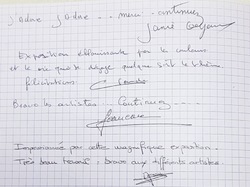 J'adore J'adore ... merci ... continuez
Exposition éblouissante par les couleurs
et la vie que se dégage quelque soit le thème
félicitations
Bravo les artistes Continuez
Impressionnée par cette magnifique exposition.
Très beau travail, bravo aux différents artistes.